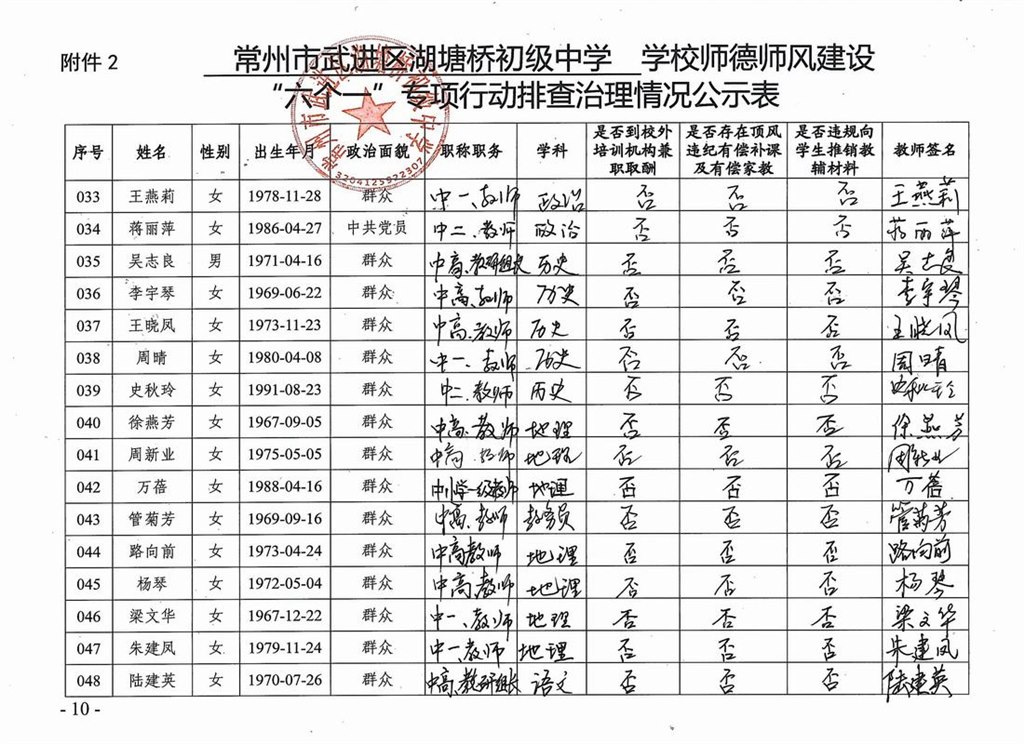 附件 2
常州市武进区湖塘桥初级中学 学校师德师风建设
“六个一”专项行动排查治理情况公示表
3204125922307
序号 姓名 性别 出生年月 政治面貌 职称职务 学科 是否到校外培训机构兼职取酬 是否存在顶风违纪有偿补课及有偿家教 是否违规向学生推销教辅材料 教师签名
033 王燕莉 女 1978-11-28 群众 中一、教师 政治 否 否 否 王燕莉
034 蒋丽萍 女 1986-04-27 中共党员 中二、教师 政治 否 否 否 蒋丽萍
035 吴志良 男 1971-04-16 群众 中高、教研组长 历史 否 否 否 吴志良
036 李宇琴 女 1969-06-22 群众 中高、教师 历史 否 否 否 李宇琴
037 王晓凤 女 1973-11-23 群众 中高、教师 历史 否 否 否 王晓凤
038 周晴 女 1980-04-08 群众 中一、教师 历史 否 否 否 周晴
039 史秋玲 女 1991-08-23 群众 中二、教师 历史 否 否 否 史秋玲
040 徐燕芳 女 1967-09-05 群众 中高、教师 地理 否 否 否 徐燕芳
041 周新业 女 1975-05-05 群众 中高 教师 地理 否 否 否 周新业
042 万蓓 女 1988-04-16 群众 中小学一级教师 地理 否 否 否 万蓓
043 管菊芳 女 1969-09-16 群众 中高、教师 教务员 否 否 否 管菊芳
044 路向前 女 1973-04-24 群众 中高教师 地理 否 否 否 路向前
045 杨琴 女 1972-05-04 群众 中高、教师 地理 否 否 否 杨琴
046 梁文华 女 1967-12-22 群众 中一、教师 地理 否 否 否 梁文华
047 朱建凤 女 1979-11-24 群众 中一、教师 地理 否 否 否 朱建凤
048 陆建英 女 1970-07-26 群众 中高、教研组长 语文 否 否 否 陆建英
- 10 -